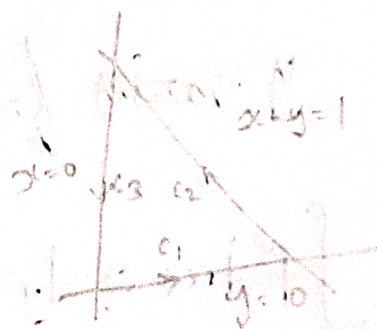 x+y=1
x=0
C3
C2
C1
y=0